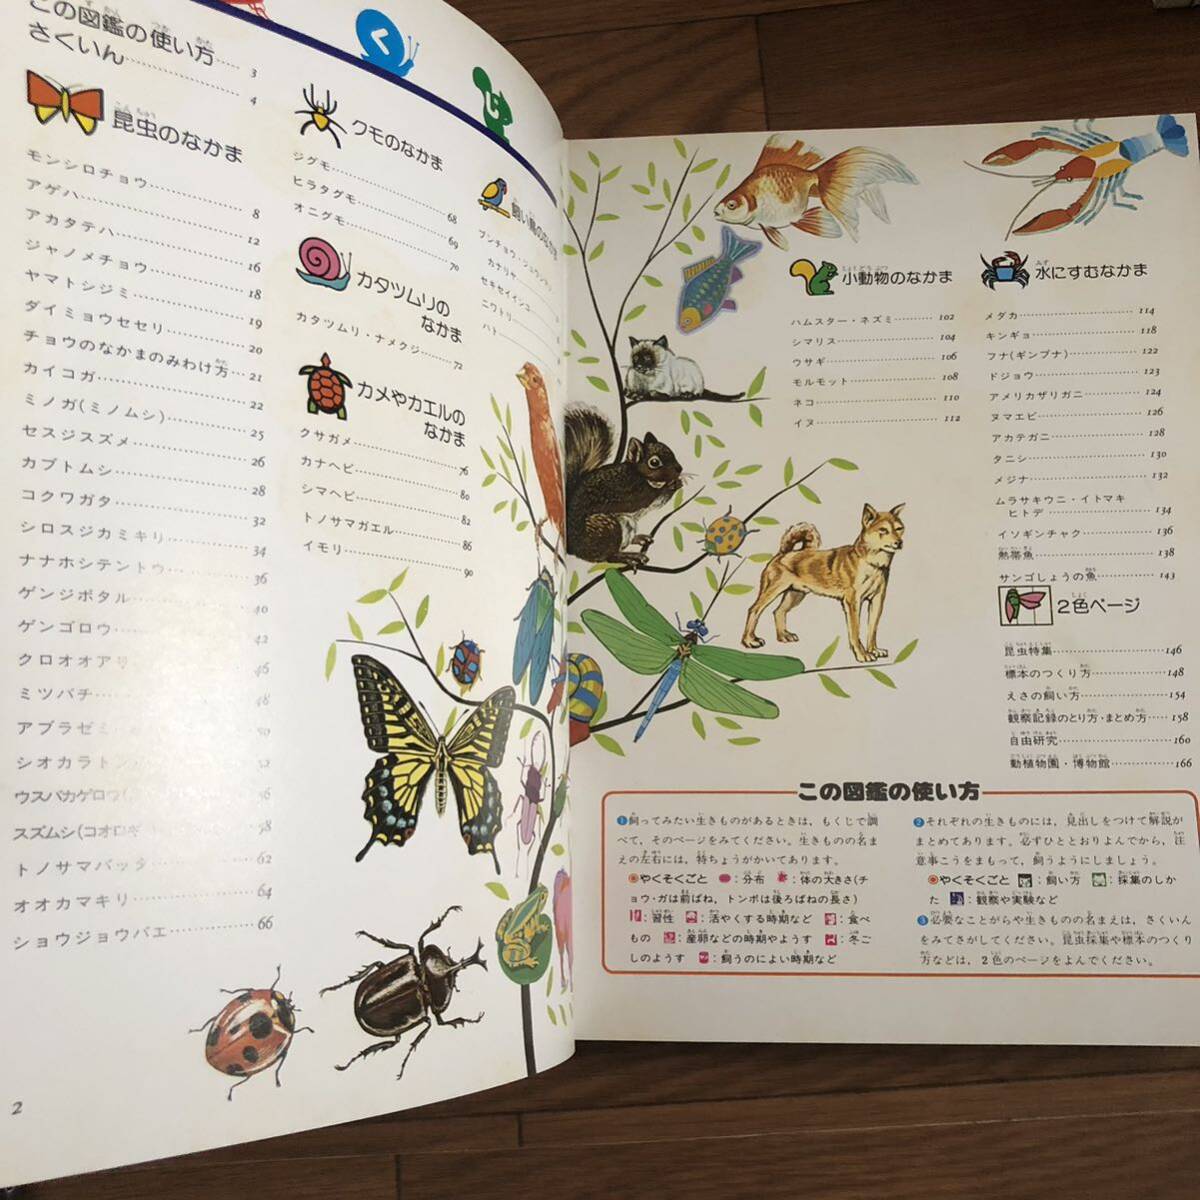 く
し
この図鑑の使い方……3
さくいん……4
昆虫のなかま
モンシロチョウ……8
アゲハ……12
アカタテハ……16
ジャノメチョウ……18
ヤマトシジミ……19
ダイミョウセセリ……20
チョウのなかまのみわけ方……21
カイコガ……22
ミノガ(ミノムシ)……25
セスジスズメ……26
カブトムシ……28
コクワガタ……32
シロスジカミキリ……34
ナナホシテントウ……36
ゲンジボタル……40
ゲンゴロウ……42
クロオオアリ……46
ミツバチ……48
アブラゼミ……50
シオカラトンボ……52
ウスバカゲロウ
スズムシ(コオロギ……58
トノサマバッタ……62
オオカマキリ……64
ショウジョウバエ……66
クモのなかま
ジグモ……68
ヒラタグモ……69
オニグモ……70
カタツムリの
なかま
カタツムリ・ナメクジ……72
カメやカエルの
なかま
クサガメ……76
カナヘビ……80
シマヘビ……82
トノサマガエル……86
イモリ……90
飼い鳥のなかま
ブンチョウ・ジュウシマツ
カナリヤ
セキセイインコ
ニワトリ
ハト
2
小動物のなかま
ハムスター・ネズミ……102
シマリス……104
ウサギ……106
モルモット……108
ネコ……110
イヌ……112
水にすむなかま
メダカ……114
キンギョ……118
フナ(ギンブナ)……122
ドジョウ……123
アメリカザリガニ……124
ヌマエビ……126
アカテガニ……128
タニシ……130
メジナ……132
ムラサキウニ・イトマキ
ヒトデ……134
イソギンチャク……136
熱帯魚……138
サンゴしょうの魚……143
2色ページ
昆虫特集……146
標本のつくり方……148
えさの飼い方……154
観察記録のとり方・まとめ方……158
自由研究……160
動植物園・博物館……166
この図鑑の使い方
❶飼ってみたい生きものがあるときは、もくじで調
べて、そのページをみてください。生きものの名ま
えの左右には、特ちょうがかいてあります。
●やくそくごと :分布 :体の大きさ(チ
ョウ・ガは前ばね、トンボは後ろばねの長さ)
:習性 :活やくする時期など :食べ
もの :産卵などの時期やようす :冬ご
しのようす :飼うのによい時期など
❷それぞれの生きものには、見出しをつけて解説が
まとめてあります。必ずひととおりよんでから、注
意事こうをまもって、飼うようにしましょう。
●やくそくごと :飼い方 :採集のしか
た :観察や実験など
❸必要なことがらや生きものの名まえは、さくいん
をみてさがしてください。昆虫採集や標本のつくり
方などは、2色のページをよんでください。